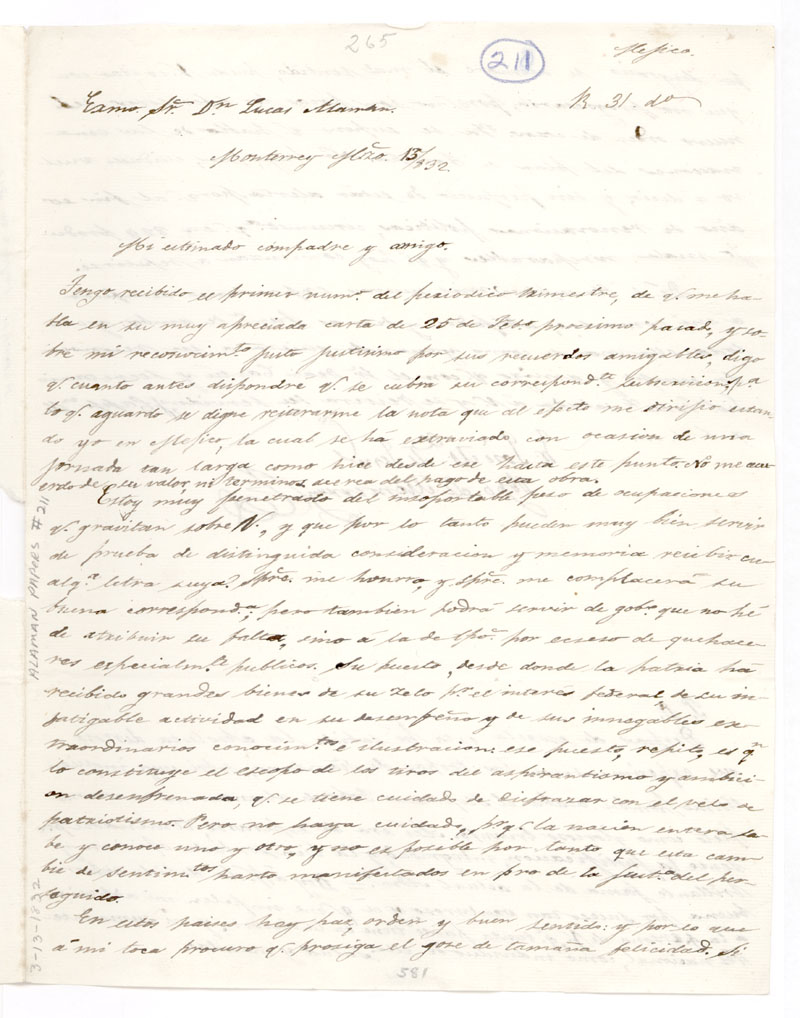 265
211
Mexico.
Exmo. Sr. Dn Lucas Alaman.
R 31. do
Monterrey Mzo. 13/832.
Mi estimado compadre y amigo.
Tengo recibido el primer numo. del periodico trimestre, de q. me ha-
bla en su muy apreciada carta de 25 de Febo. procsimo pasado, y so-
bre mi reconocimto. justo justisimo por sus recuerdos amigables, digo
q. cuanto antes dispondré q. se cubra su correspondte. subscricion, pa.
lo q. aguardo se digne reiterarme la nota que al efecto me dirijió estan
do yo en Mejico, la cual se há extraviado con ocasion de una
jornada tan larga como hice desde ese hasta este punto. No me acu
erdo de su valor, ni terminos acerca del pago de esta obra.
Estoy muy penetrado del insoportable peso de ocupaciones
q. gravitan sobre V., y que por lo tanto pueden muy bien servir
de prueba de distinguida consideracion y memoria recibir cu-
alqa. letra suya. Spre. me honrra, y spre. me complacerá su
buena correspona., pero tambien podrá servir de gobo. que no hé
de atribuir su falta, sino á la de tpo. por ecseso de quehace-
res especialmte. publicos. Su puesto, desde donde la patria há
recibido grandes bienes de su zelo pr. el interés federal, de su in-
fatigable actividad en su desempeño y de sus innegables ex-
traordinarios conocimtos. é ilustracion: ese puesto, repito, es qn.
lo constituye el escopo de los tiros del aspirantismo y ambici-
on desenfrenada, q. se tiene cuidado de disfrazar con el velo de
patriotismo. Pero no haya cuidado, prq. la nacion entera sa-
be y conoce uno y otro, y no es posible por tanto que esta cam-
bie de sentimtos. harto manifestados en pro de la justa. del per-
seguido.
En estos paises hay paz, orden y buen sentido: y por lo que
á mi toca procuro q. prosiga el gose de tamaña felicidad. Si
581
ALAMAN PAPERS #211
3-13-1832